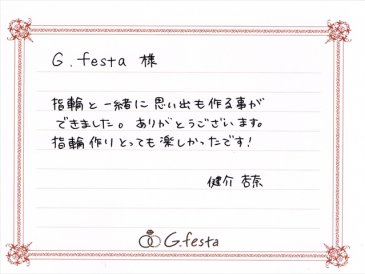 G.festa 様
指輪と一緒に思い出も作る事が
できました。ありがとうございます。
指輪作りとっても楽しかったです!
健介 杏奈
G.festa